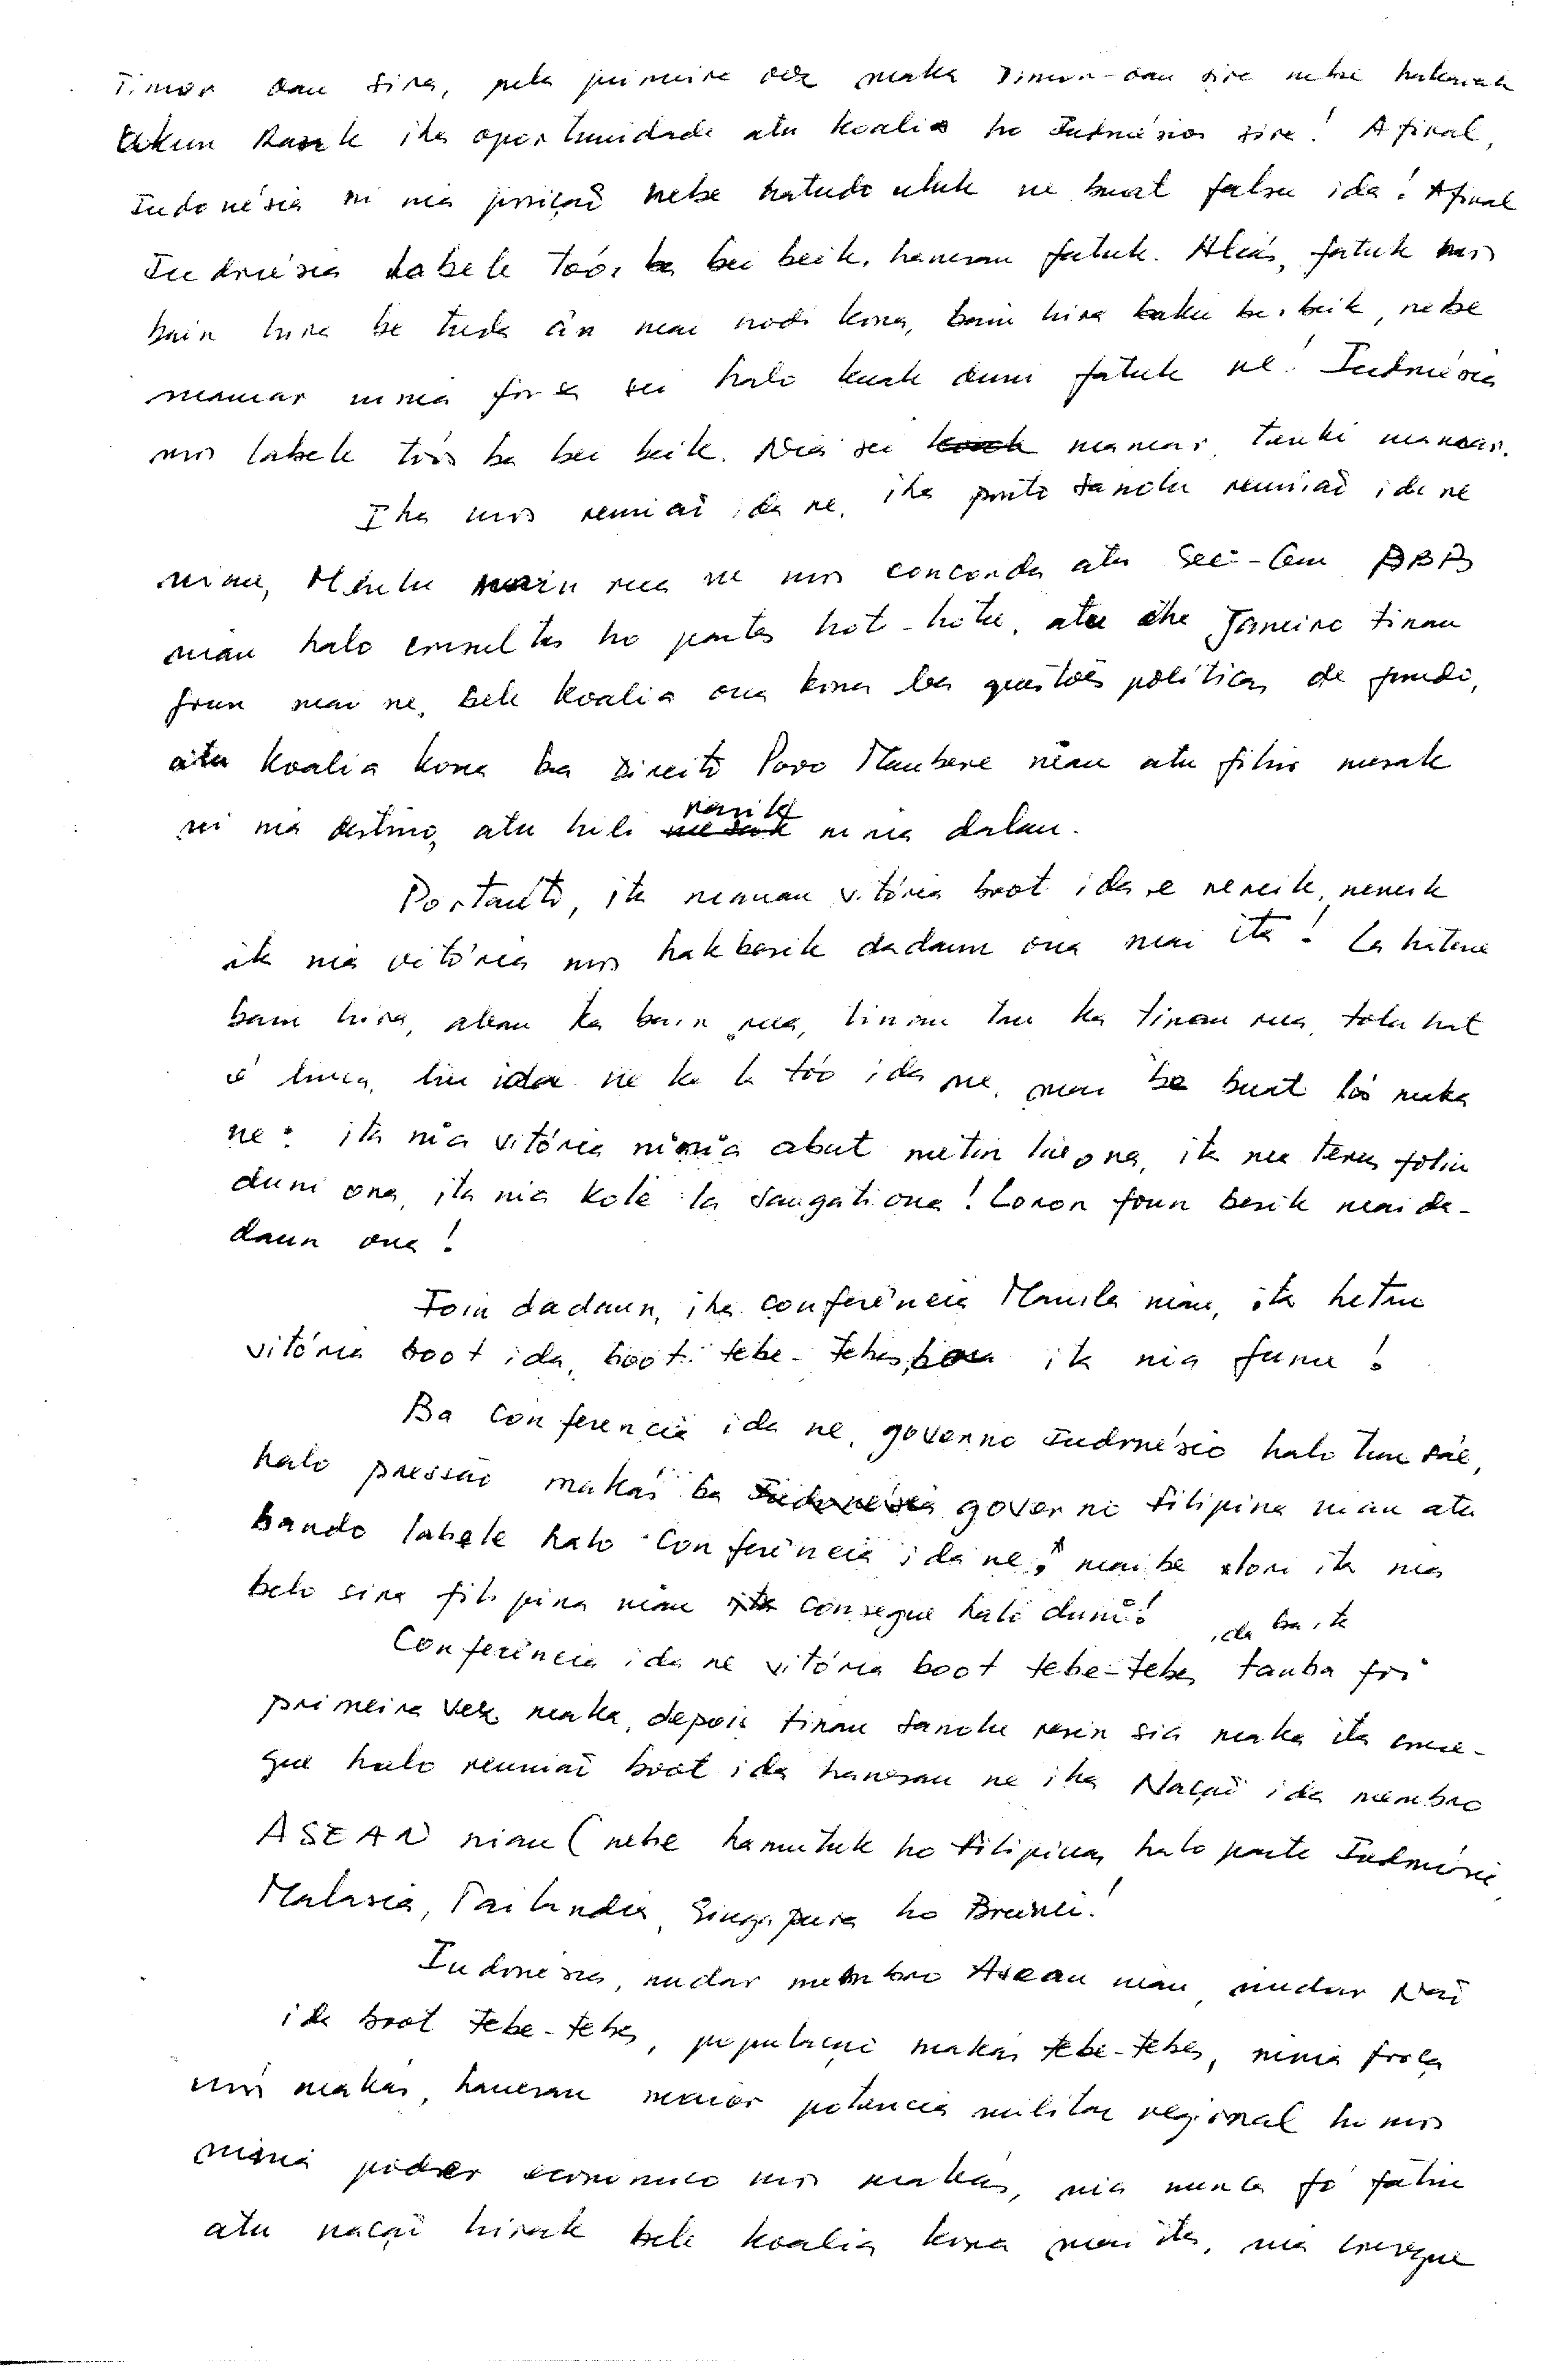 Timor oan sira, pela primeira vez maka Timor-oan sira nebe hakarak
Ukun Rasik iha oportunidade atu koalia ho Indonésios sira! Afinal,
Indonésia ni nia posição nebe hatudo uluk ne buat falsu ida! Afinal
Indonésia labele toós ba bei beik, hanesan fatuk. Aliás, fatuk mos
bain hira be tuda án mai nodi kona, bain hira baku bei beik, nebe
mamar ninia forsa sei halo kuak duni fatuk ne! Indonésia
mos labele toós ba bei beik. Nia sei mamar, tenki mamar.
Iha mos reunião ida ne, iha ponto sanolu reunião ida ne
nian, Mentu rua ne mos concorda atu Sec-Gen BBB
nian halo consultas ho partes hot-hotu, atu iha Janeiro tinan
foun mai ne, bele koalia ona kona ba questões políticas de fundo,
atu koalia kona ba Direito Povo Maubere nian atu fihir mesak
ni nia destino, atu hili rasik ninia dalan.
Portanto, ita manan vitória boot ida ne neneik, neneik
ita nia vitória mos hakbesik dadaun ona mai ita! La hatene
bain hira, aban ka bain rua, tinan tan ka tinan rua, tolu hat
ó lima, liu ida ne ka la tóo ida ne, mai be buat lós maka
ne: ita nia vitória ninia abut metin liu ona, ita nia terus folin
duni ona, ita nia kole la saugati ona! Loron foun besik mai da-
daun ona!
Foin dadaun, iha conferência Manila nian, ita hetan
vitória boot ida, boot tebe-tebes, ba ita nia funu!
Ba Conferencia ida ne, governo indonésio halo tun sáe,
halo pressão makás ba governo filipina nian atu
bando labele halo Conferência ida ne, mai be maluk ita nia
belo sira filipina nian consegue halo duni!
Conferência ida ne vitória boot tebe-tebes ida ba ita tanba foi
primeira vez maka, depois tinan sanolu resin sia maka ita conse-
gue halo reunião boot ida hanesan ne iha Nação ida membro
ASEAN nian (nebe hamutuk ho filipinas halo parte Indonésia,
Malasia, Tailandia, Singapura ho Brunei!
Indonésia, nudar membro Asean nian, nudar Nação
ida boot tebe-tebes, população makás tebe-tebes, ninia força
mos makás, hanesan maior potencia militar regional ho mos
ninia poder economico mos makás, nia nunca fó fatin
atu nação hirak bele koalia kona mai ita, nia consegue